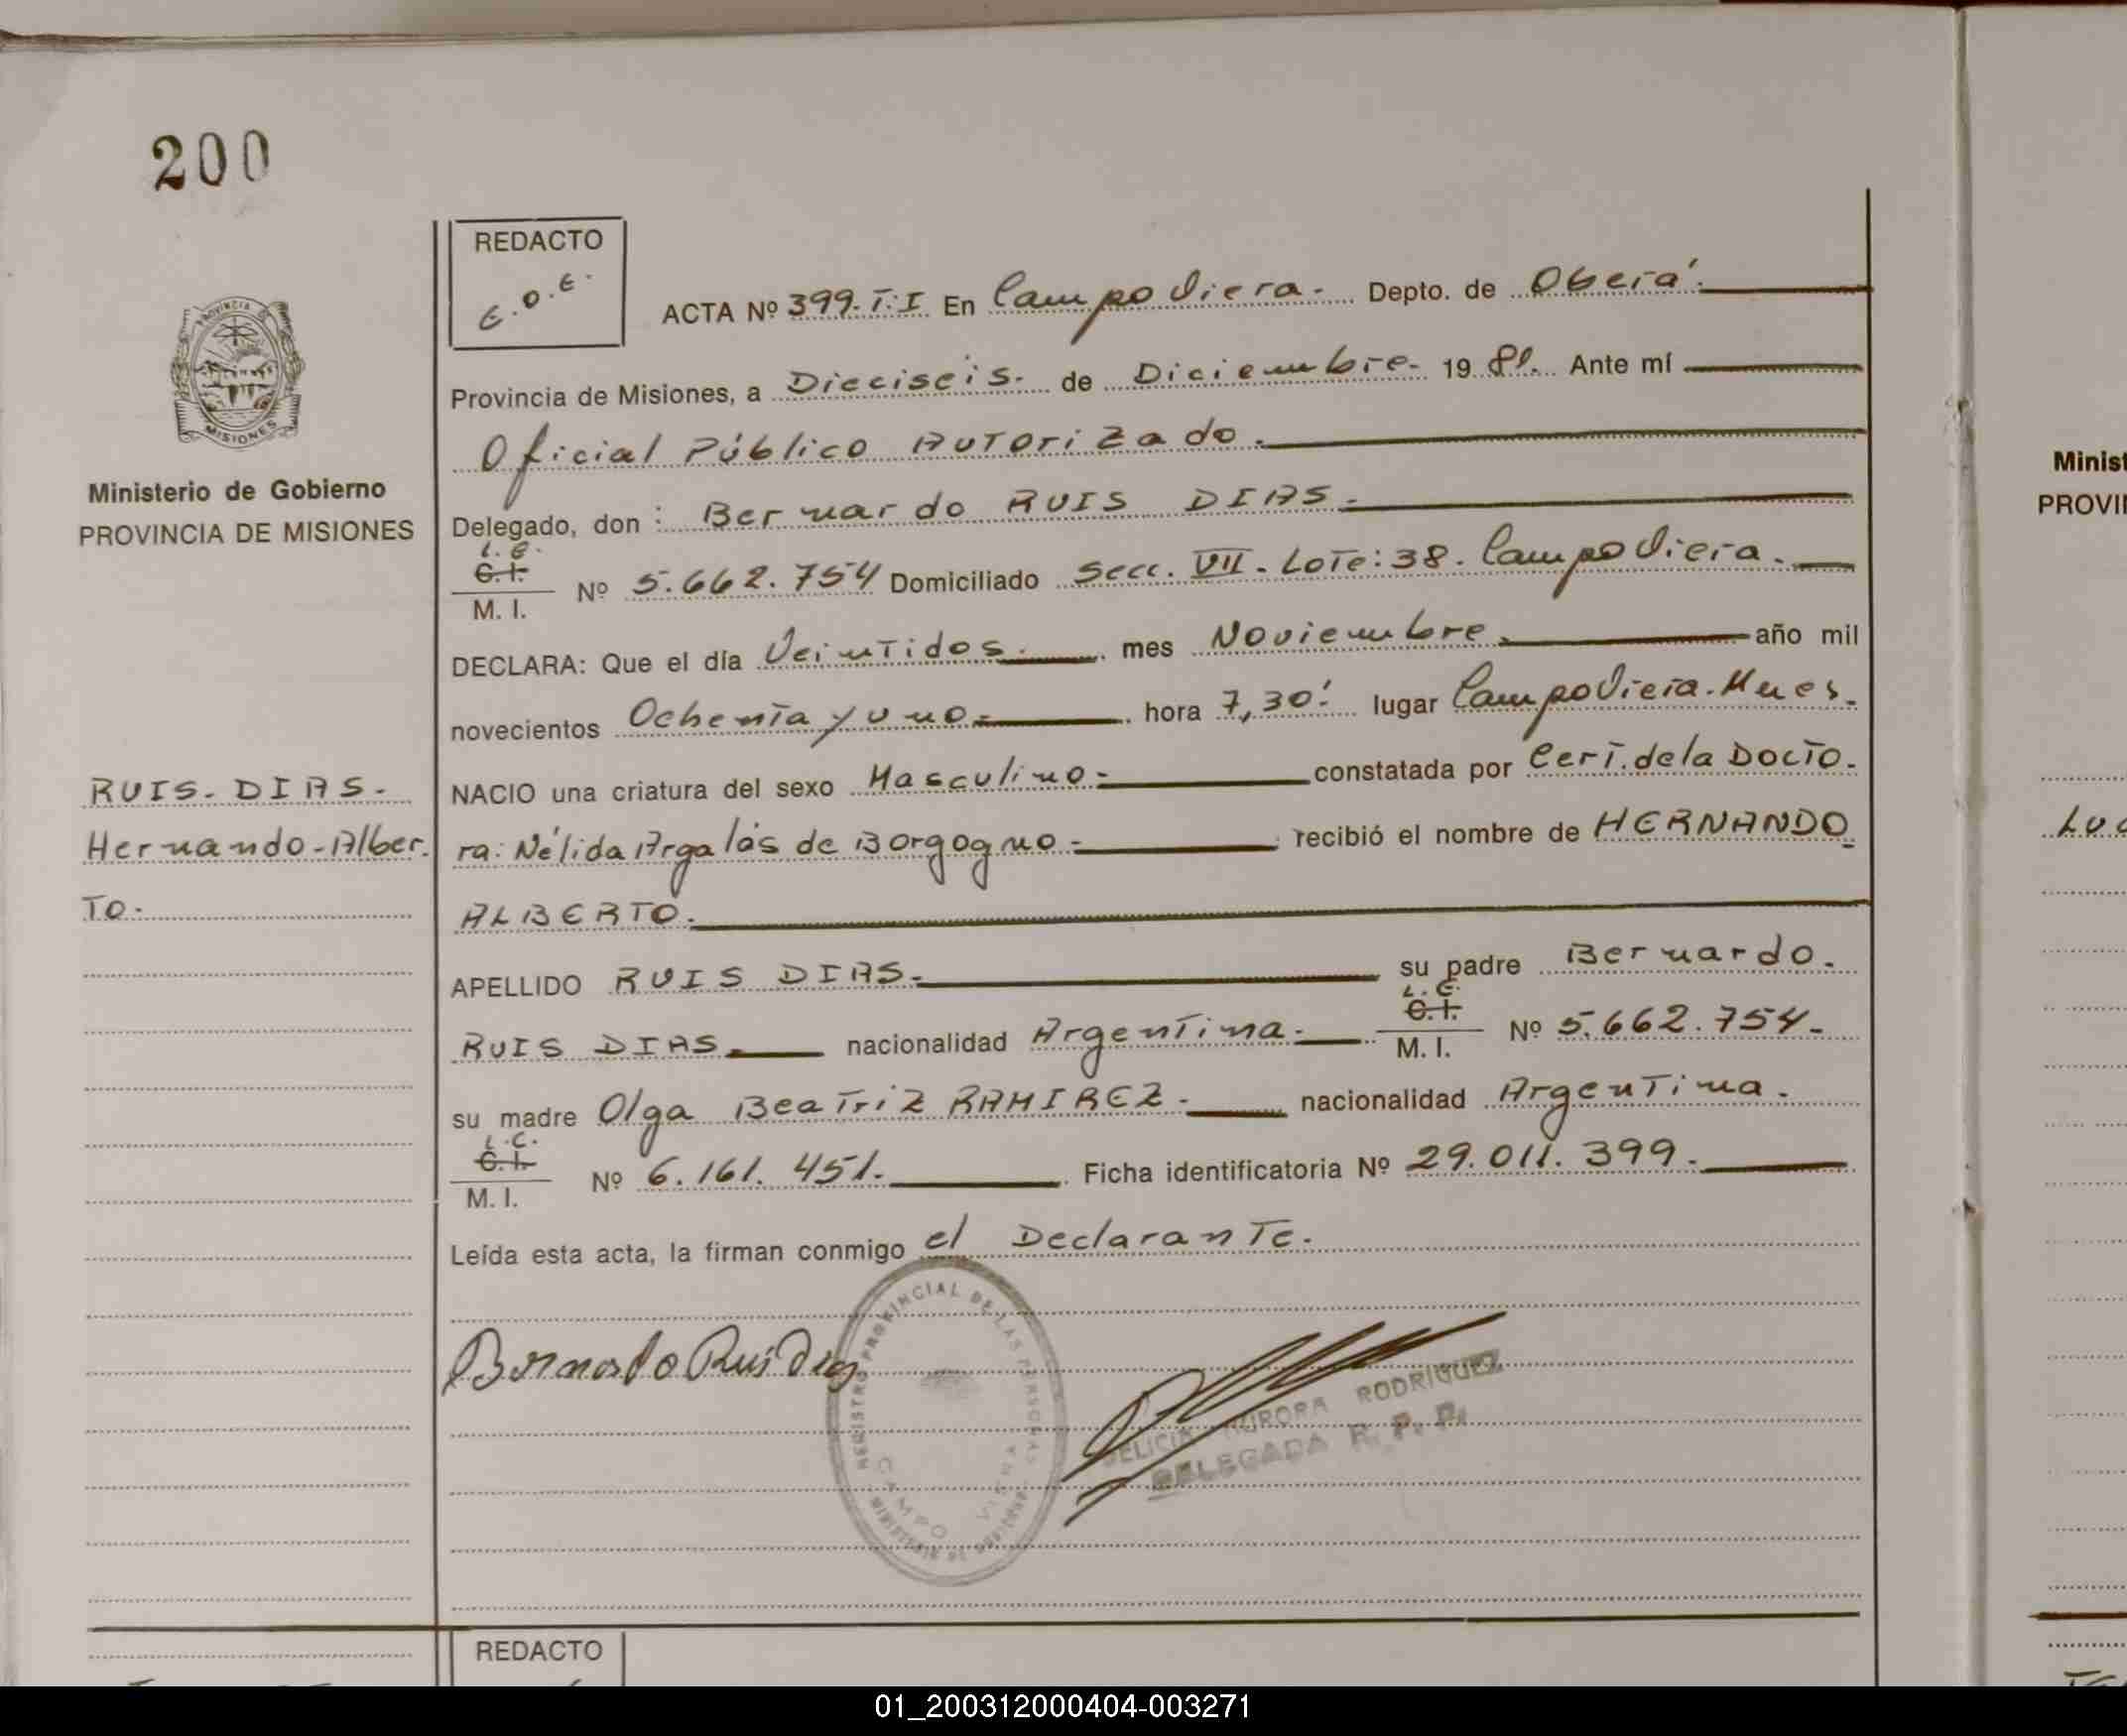 200
REDACTO
E.O.E.
ACTA Nº 399. T: I En Campo Viera. Depto. de Oberá.
Provincia de Misiones, a Dieciseis. de Diciembre. 19 81. Ante mí
Oficial Público Autorizado.
Delegado, don: Bernardo RUIS DIAS.
L. E.
C. I.
M. I. Nº 5.662.754 Domiciliado Secc. VII. Lote: 38. Campo Viera.
DECLARA: Que el día Veintidos. mes Noviembre. año mil
novecientos Ochenta y uno hora 7,30! lugar Campo Viera. Mnes.
NACIO una criatura del sexo Masculino constatada por Cert. de la Docto.
ra: Nélida Argalás de Borgogno recibió el nombre de HERNANDO
ALBERTO.
APELLIDO RUIS DIAS. su padre Bernardo.
L. E.
C. I.
RUIS DIAS. nacionalidad Argentina. M. I. Nº 5.662.754.
su madre Olga Beatriz RAMIREZ. nacionalidad Argentina.
L. C.
C. I.
M. I. Nº 6.161.451. Ficha identificatoria Nº 29.011.399.
Leída esta acta, la firman conmigo el Declarante.
Bernardo Ruis Dias
REGISTRO PROVINCIAL DE LAS PERSONAS
CAMPO VIERA
AURORA RODRIGUEZ
DELEGADA R. P. P.
PROVINCIA DE
MISIONES
Ministerio de Gobierno
PROVINCIA DE MISIONES
RUIS. DIAS.
Hernando-Alber.
To.
REDACTO
Minist
PROVI
01_200312000404-003271